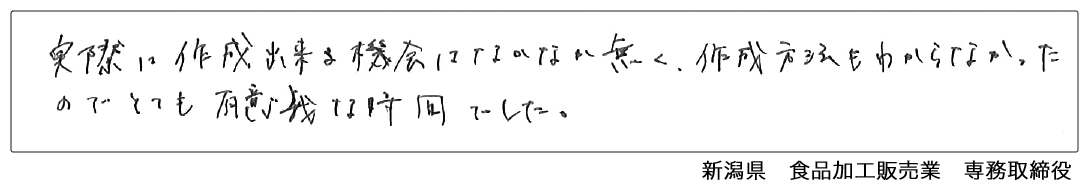 実際に作成出来る機会はなかなか無く、作成方法もわからなかった
のでとても有意義な時間でした。
新潟県　食品加工販売業　専務取締役